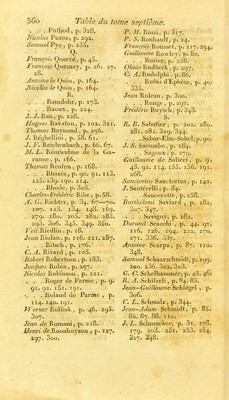 560 Table du tome septième.
. . . Puthod, p. 328.
Nicolas Puzos, p. 291.
Samuel Pye, p. 235.
Q.
François Quarré, p. 45.
François Quesnay, p. 26. 27.
28.
Antoine le Quin, p. 164.
Nicolas le Quin, p. 164.
R.
. . . Ramdohr, p. 173.
. . . Raoux, p. 224.
J. J. Rau, p. 128.
Hugues Ravaton, p. 102. 321.
Thomas Raynand, p. 296.
J. Réghellini, p. 58. 61.
J. F. Reichenbach, p. 66. 67.
M. L. Réneaulme de la Garanne, p. 166.
Thomas Renton, p. 168.
. . . Rhazès, p. 90. 91. 113.
125. 139. 190. 214.
. . . Rhode, p. 305.
Charles-Frédéric Ribe, p. 58.
A. G. Richter, p. 34.
127. 123. 134. 148. 161.
279. 280. 203. 282. 283.
293. 306. 345. 349. 350.
Veit Riedlin, p. 18.
Jean Riolan, p. 116. 121. 287.
. . . Ritsch, p. 176.
C. A. Rivard, p. 108.
Robert Robertson, p. 183.
Jacques Robin, p. 297.
Nicolas Robinson, p. 221.
. . . Roger de Parme, p. 9.
91. 92. 151. 191.
. . . Roland de Parme, p.
114. 140. 191.
Werner Rolfink, p. 46. 295.
307.
Jean de Romani, p. 218.
Henri de Roonhuyzen, p. 127.
297. 300.
P. M. Rossi, p. 317.
P. S. Rouhault, p. 24.
François Rousset, p. 217. 294.
Guillaume Rowley, p. 80.
. . . Rozier, p. 288.
Olaüs Rudbeck, p. 297.
C. A. Rudolphi, p. 86.
. . . Rufus d'Ephèse, p. 40.
335.
Jean Ruleau, p. 300.
. . . Runge, p. 291.
Frédéric Ruysch, p. 343.
S.
R. B. Sabatier, p. 202. 280.
281. 282. 329. 344.
. . . Sabor-Ebn-Sahel, p. 96.
J. S. Sacombe, p. 284.
. . . Sagoux, p. 279.
Guillaume de Salicet, p. 9.
43. 92. 114. 153. 156. 191.
268.
Sanctorius Sanctorius, p. 141.
J. Santorelli, p. 84.
. . . Saucerotte, p. 338.
Barthélemi Saviard, p. 182.
307. 347.
. . . Savigny, p. 282.
Durand Scacchi, p. 44. 91.
116. 126. 194. 222. 270.
271. 336. 337.
Antoine Scarpa, p. 87. 110.
348.
Samuel Schaarschmidt, p. 197.
200. 236. 322. 323.
G. C. Schelhammer, p. 45. 46.
R. A. Schiferli, p. 84. 85.
Jean-Guillaume Schlégel, p.
306.
C. L. Schmalz, p. 344.
Jean-Adam Schmidt, p. 85.
86. 87. 88. 111.
J. L. Schmucker, p. 31. 178.
179. 203. 231. 253. 254.
327. 348.